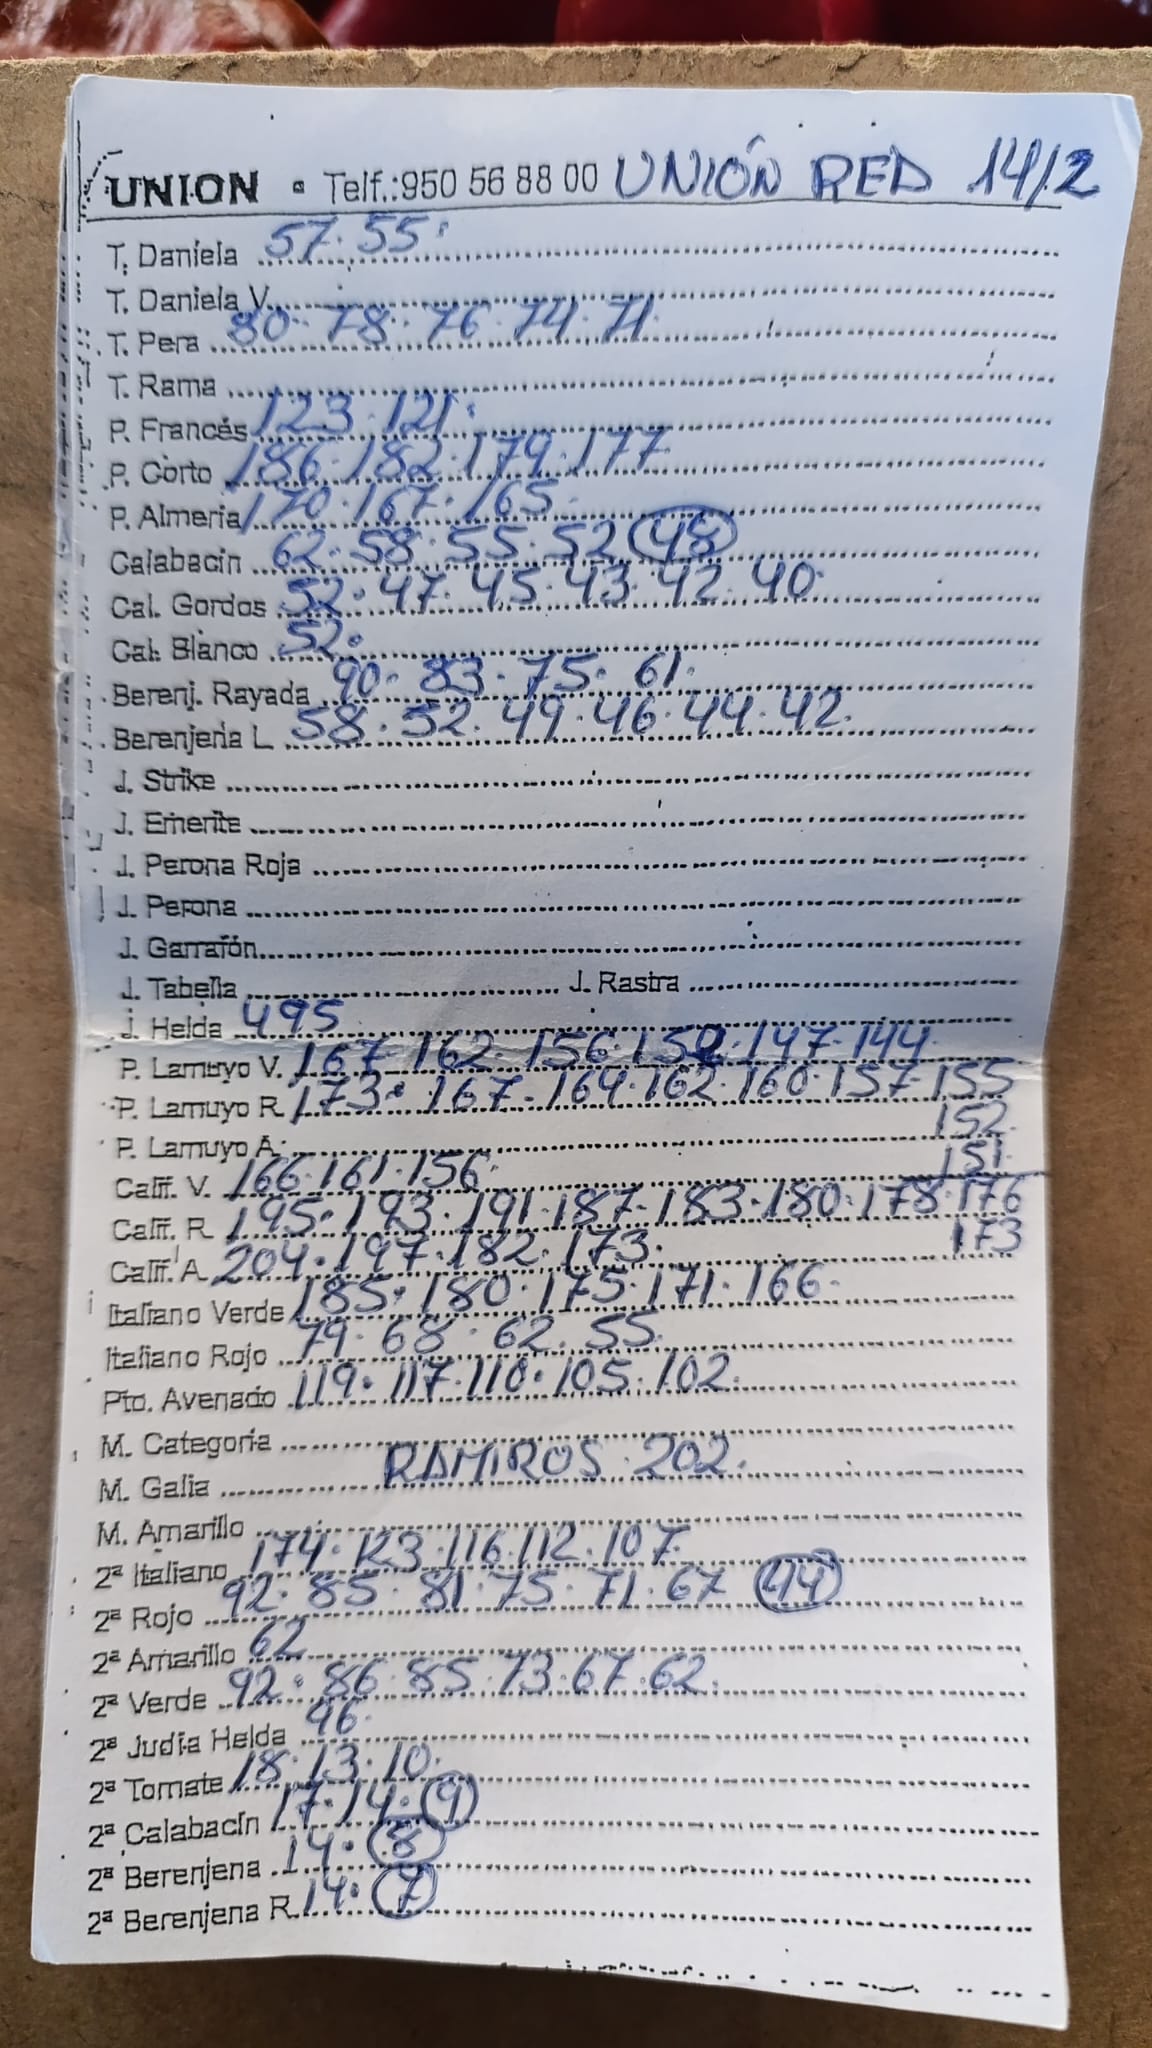 UNION • Telf.:950 56 88 00 UNIÓN RED 14/2
T. Daniela 57. 55.
T. Daniela V.
T. Pera 80. 78. 76. 74. 71.
T. Rama
P. Francés 123. 121.
P. Corto 186. 182. 179. 177
P. Almería 170. 167. 165.
Calabacín 62. 58. 55. 52 48
Cal. Gordos 52. 47. 45. 43. 42. 40.
Cal. Blanco 52.
Berenj. Rayada 90. 83. 75. 61.
Berenjena L 58. 52. 49. 46. 44. 42.
J. Strike
J. Emerite
J. Perona Roja
J. Perona
J. Garrafón
J. Tabella J. Rastra
J. Helda 495
P. Lamuyo V. 167. 162. 156. 152. 147. 144.
P. Lamuyo R. 173. 167. 164. 162. 160. 157. 155
152.
P. Lamuyo A. 151.
Calif. V. 166. 161. 156.
Calif. R. 195. 193. 191. 187. 183. 180. 178. 176
173
Calif. A. 204. 197. 182. 173.
Italiano Verde 185. 180. 175. 171. 166.
Italiano Rojo 79. 68. 62. 55.
Pto. Avenado 119. 117. 110. 105. 102.
M. Categoria
M. Galia RAMIROS 202.
M. Amarillo
2ª Italiano 174. 123. 116. 112. 107.
2ª Rojo 92. 85. 81. 75. 71. 67 44
2ª Amarillo 62
2ª Verde 92. 86. 85. 73. 67. 62.
2ª Judía Helda 96.
2ª Tomate 18. 13. 10.
2ª Calabacín 17. 14. 9
2ª Berenjena 14. 8
2ª Berenjena R. 14. 7